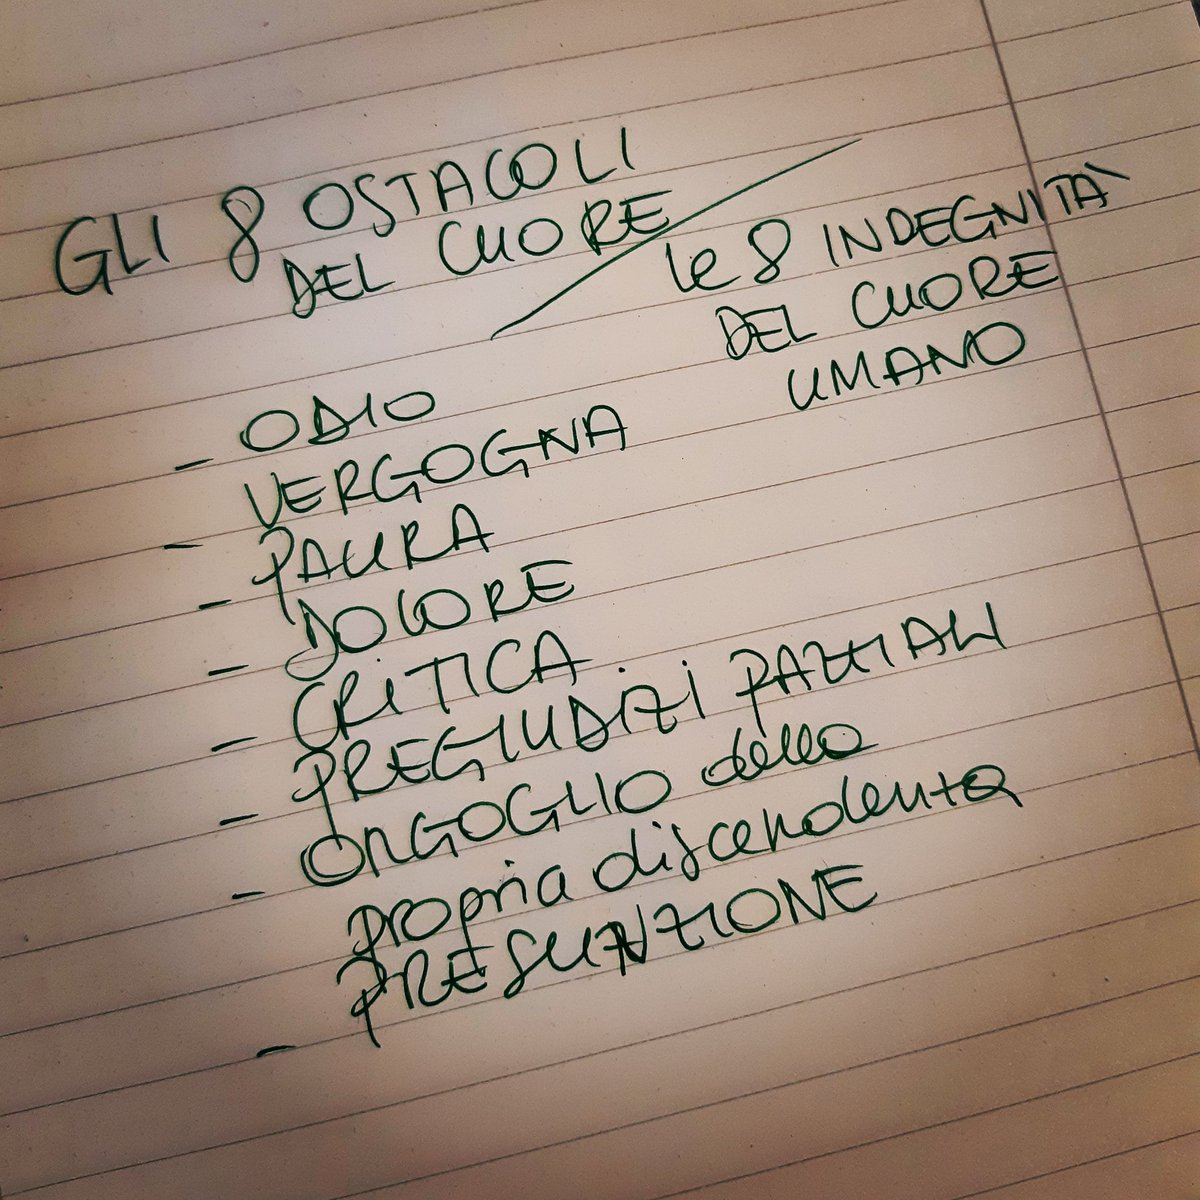 GLI 8 OSTACOLI
DEL CUORE
le 8 INDEGNITÀ
DEL CUORE
UMANO
- ODIO
- VERGOGNA
- PAURA
- DOLORE
- CRITICA
- PREGIUDIZI PARZIALI
- ORGOGLIO della
propria discendenza
- PRESUNZIONE